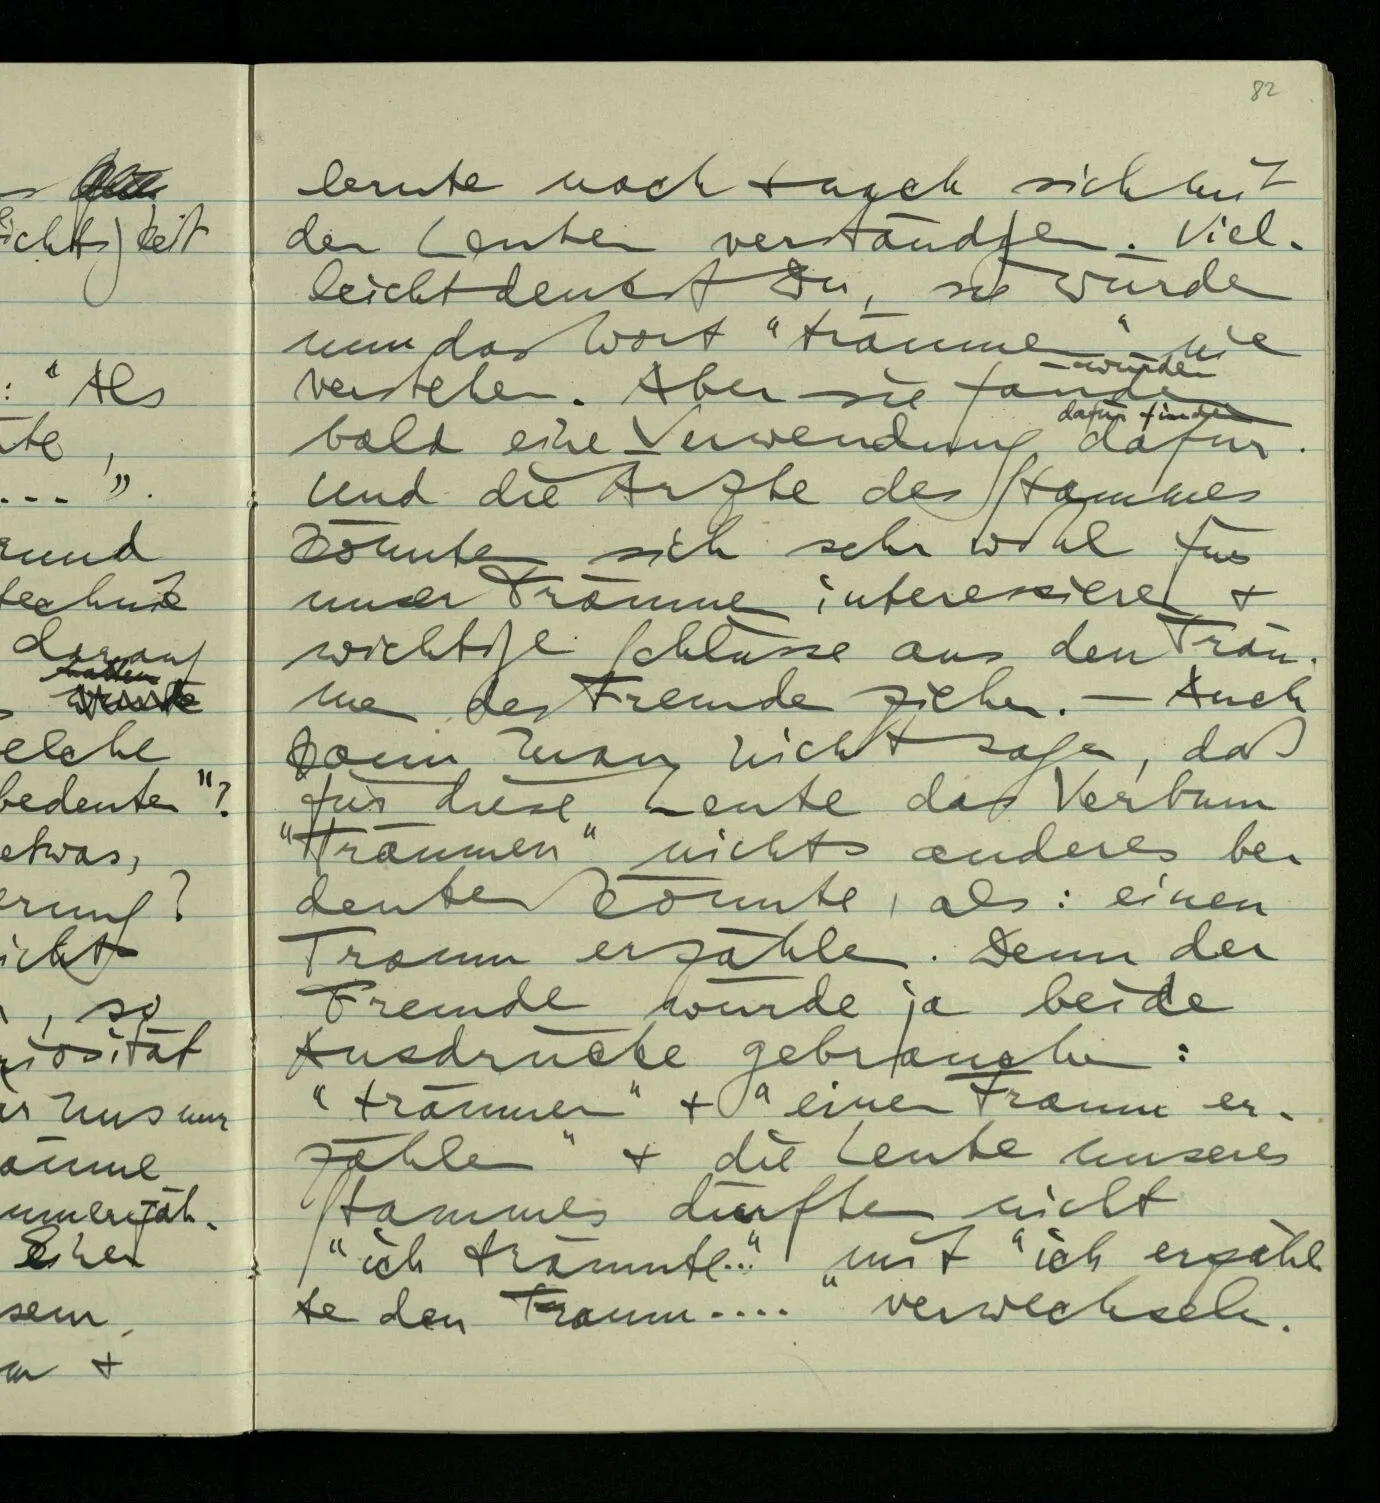 82
lernte nach + nach sich mit
den Leuten verständigen. Viel-
leicht denkst Du, sie würden
nun das Wort "träumen" nie
verstehen. Aber sie fänden
würden
bald eine Verwendung dafür.
dafür finden
Und die Ärzte des Stammes
könnten sich sehr wohl für
unser Träumen interessieren +
wichtige Schlüsse aus den Träu-
men des Fremden ziehen. — Auch
kann man nicht sagen, daß
für diese Leute das Verbum
"träumen" nichts anderes be-
deuten könnte, als: einen
Traum erzählen. Denn der
Fremde würde ja beide
Ausdrücke gebrauchen:
"träumen" + "einen Traum er-
zählen" + die Leute unseres
Stammes dürften nicht
"ich träumte..." mit "ich erzähl
te den Traum...." verwechseln.
ichtigkeit
: "Als
te,
...".
rund
technik
darauf
hatten
elche
bedeuten"?
etwas,
erung?
icht
, so
riosität
uns nur
äume
einen
sem
+